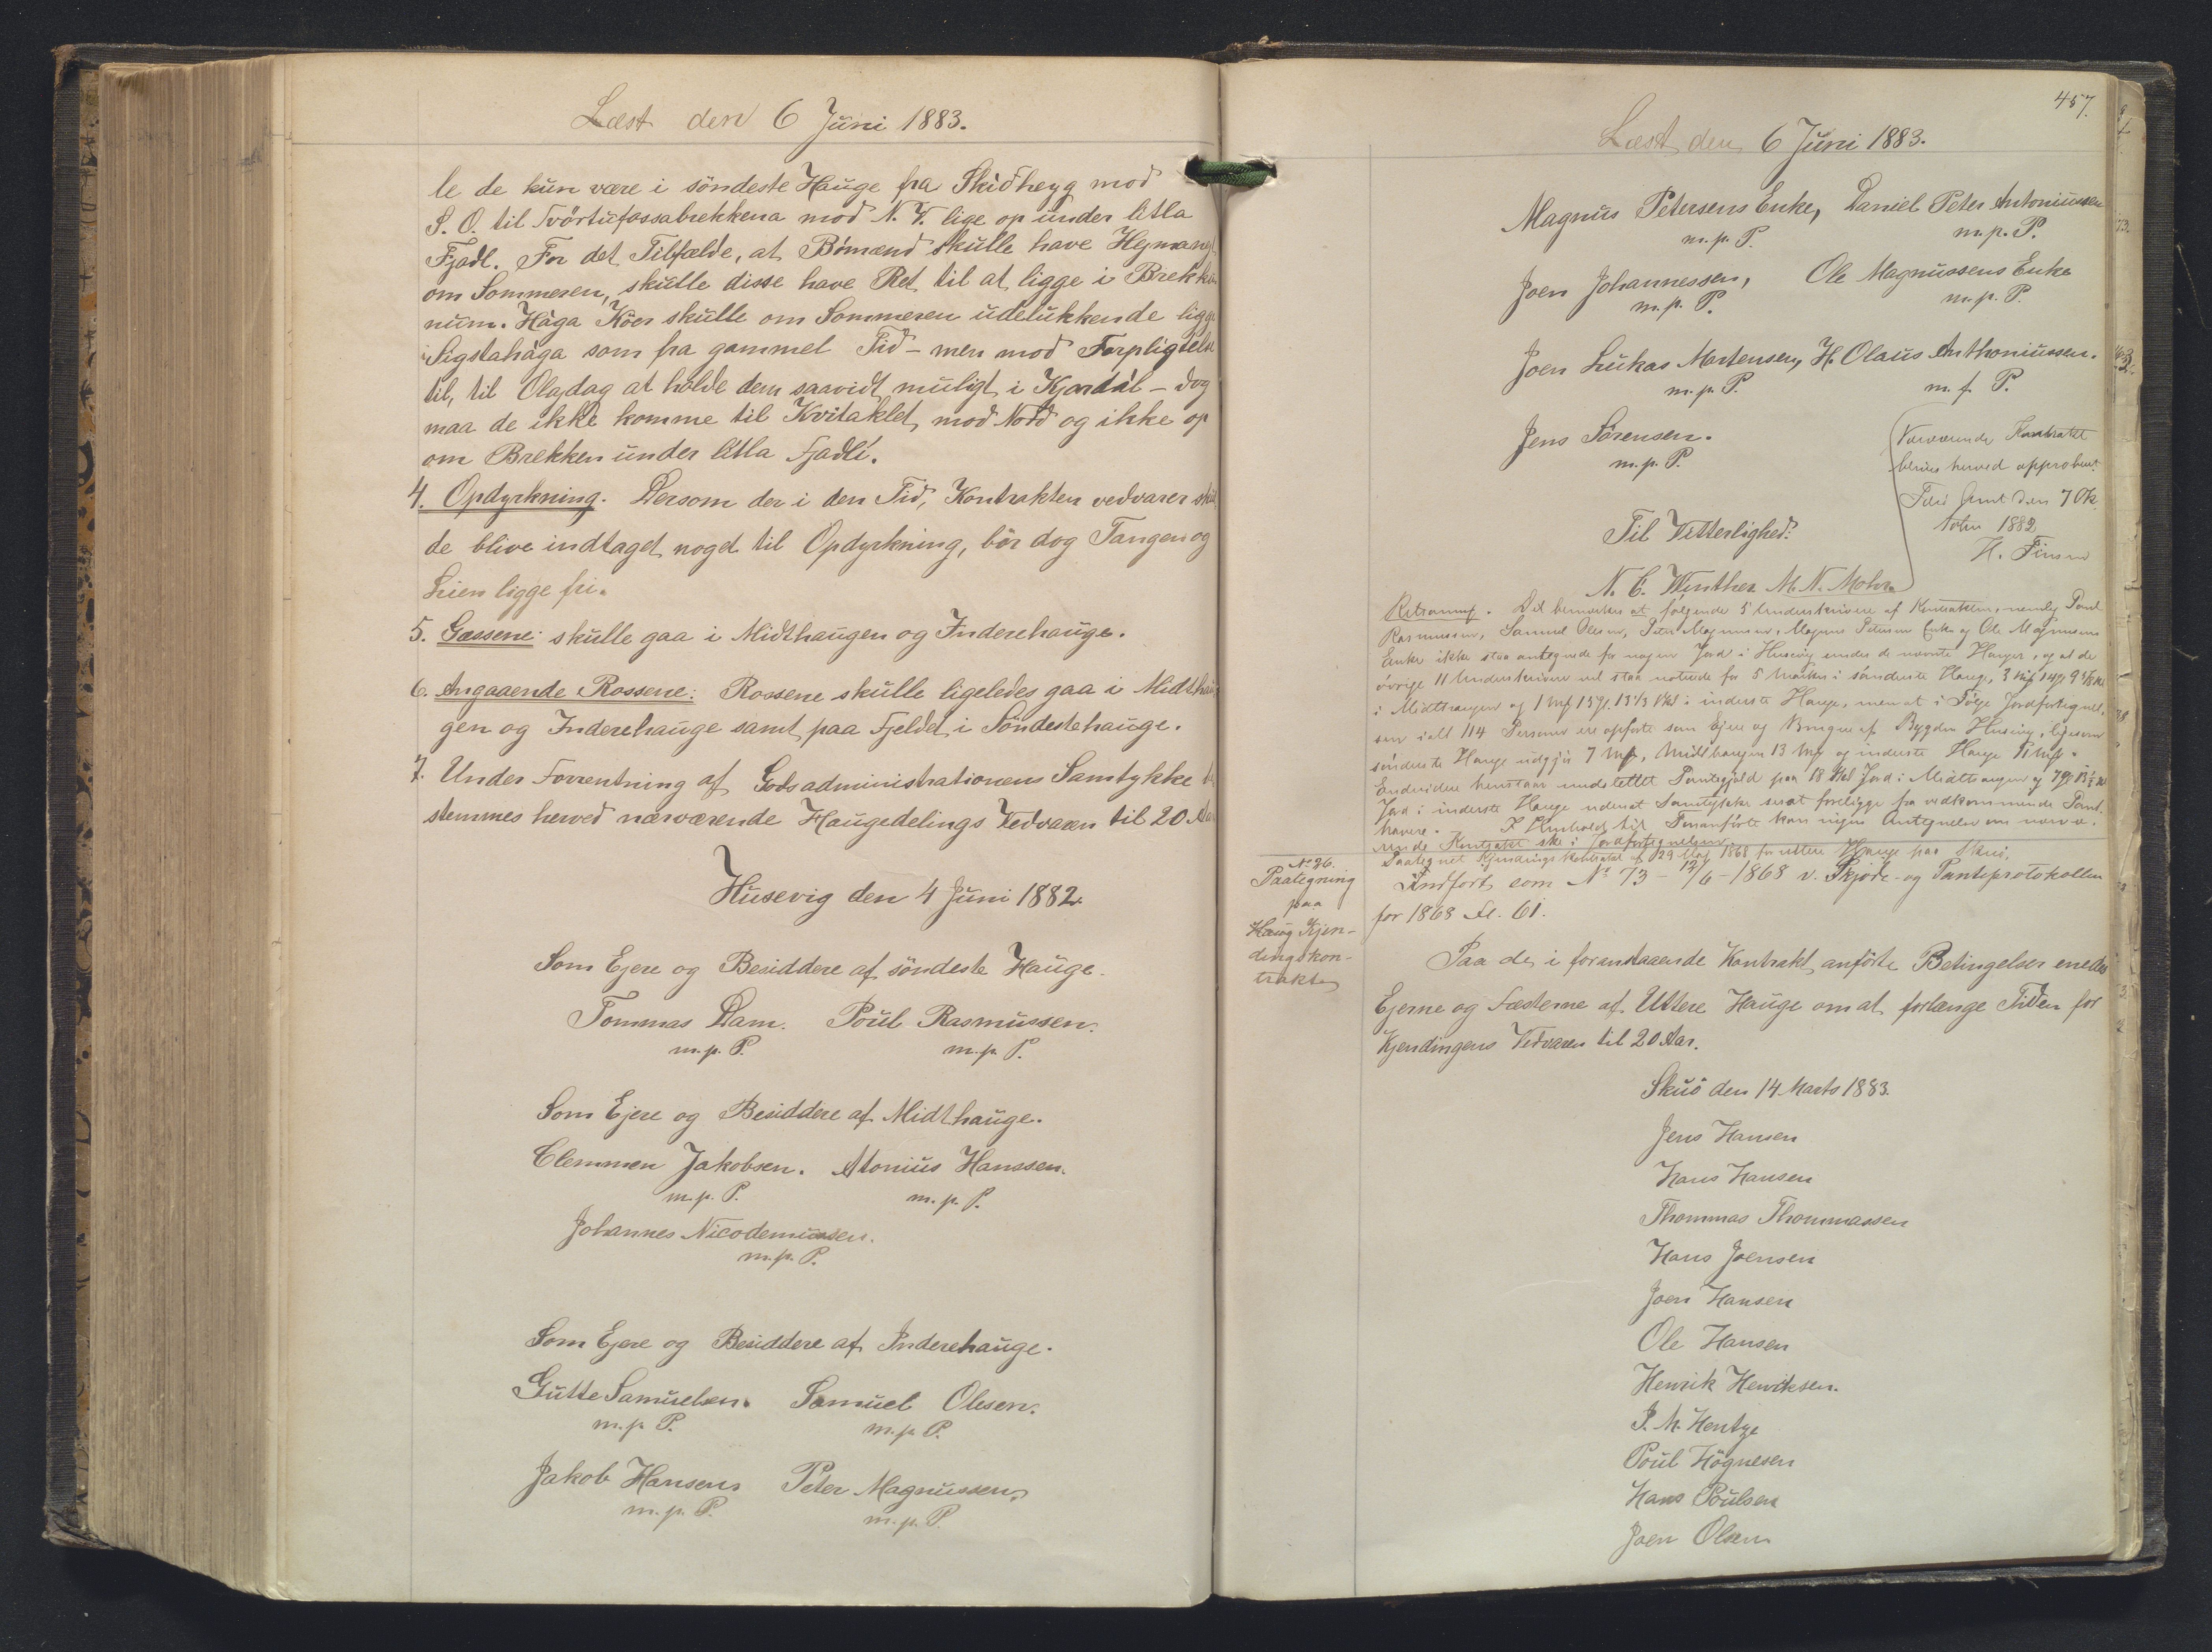 Læst den 6 Juni 1883.
le de kun være i söndeste Hauge fra Skidheyg mod
S. O. til Tvörtufossabrekkena mod N. V. lige op under litla
Fjadl. For det Tilfælde, at Bömænd skulle have Hejmang
om Sommeren, skulle disse have Ret til at ligge i Brekku
num. Hàga Köer skulle om Sommeren udelukkende ligge
i Sigstahàga som fra gammel Tid - men mod Forpligtelse
til, til Olajdag at holde dem saavidt muligt i Kjardál - dog
maa de ikke komme til Kvitaklet mod Nord og ikke op
om Brekken under litla fjadli.
4. Opdyrkning. Dersom der i den Tid, Kontrakten vedvarer skul
de blive indtaget noget til Opdyrkning, bör dog Tangen og
Lien ligge fri.
5. Gassene: skulle gaa i Midthaugen og Inderehauge.
6. Angaaende Rossene: Rossene skulle ligeledes gaa i Midthau
gen og Inderehauge samt paa Fjeldet i Söndestehauge.
7. Under Forventning af Godsadministrationens Samtykke be
stemmes herved nærværende Haugedelings Vedvaren til 20 Aar
Husevig den 4 Juni 1882.
Som Ejere og Besiddere af söndeste Hauge.
Tommas Dam. Poul Rasmussen.
m. p. P. m. p. P.
Som Ejere og Besiddere af Midthauge.
Clemmen Jakobsen. Atonius Hanssen.
m. p. P. m. p. P.
Johannes Nicodemussen.
m. p. P.
Som Ejere og Besiddere af Inderehauge.
Gutte Samuelsen. Samuel Olesen.
m. p. P. m. p. P.
Jakob Hansen Peter Magnussen
m. p. P. m. p. P.
457.
Læst den 6 Juni 1883.
Magnus Petersens Enke, Daniel Peter Antoniussen
m. p. P. m. p. P.
Joen Johannessen, Ole Magnussens Enke
m. p. P. m. p. P.
Joen Lukas Mortensen, H. Olaus Anthoniussen.
m. p. P. m. p. P.
Jens Sörensen.
m. p. P.
Nærværende Kontrakt
bliver herved approberet
Færø Amt den 7 Ok
tober 1882
H. Finsen
Til Vitterlighed:
N. C. Winther M. N. Mohr
Retsanm. Det bemærkes at følgende 5 Underskrivere af Kontrakten, nemlig Poul
Rasmussen, Samuel Olesen, Peter Magnussen, Magnus Petersens Enke og Ole Magnussens
Enke ikke staa antegnede for nogen Jord i Husevig under de nævnte Hauger, og at de
øvrige 11 Underskrivere vel staa noterede for 5 Marker i söndeste Hauge, 3 Mk 14 G 9
i Midthaugen og 1 Mk 15 G. 13 1/3 Skl i inderste Hauge, men at i Følge Jordfortegnel-
sen ialt 114 Personer ere opførte som Ejere og Brugere af Bygden Husevig, ligesom
sönderste Hauge udgjør 7 Mk, Midthaugen 13 Mk og inderste Hauge 11 Mk.
Endvidere henstaar uudslettet Pantegjæld paa 18 Skl Jord i Midthaugen og 7 G 13 1/3 Skl
Jord i inderste Hauge uden at Samtykke sees at foreligge fra vedkommende Pant-
havere. I Henhold til Foranførte kan ingen Antegnelse om nærvæ-
rende Kontrakt ske i Jordfortegnelsen.
Nº 36.
Paategning
paa
Haug Kjen-
dingskon-
trakten
Paategnet Kjendings Kontrakt af 29 Maj 1868 for uttere Hauge paa Skuø,
Lindfört som Nº 73 - 12/6 - 1868 v. Skjöde- og Panteprotokollen
for 1868 fl. 61.
Paa de i foranstaaende Kontrakt anförte Betingelser enedes
Ejerne og Fæsterne af Uttere Hauge om at forlænge Tiden for
Kjendingens Vedvaren til 20 Aar.
Skuö den 14 Marts 1883.
Jens Hansen
Hans Hansen
Thommas Thommassen
Hans Joensen
Joen Hansen
Ole Hansen
Henrik Henriksen.
P. M. Hentze
Poul Högnesen
Hans Poulsen
Joen Olsen